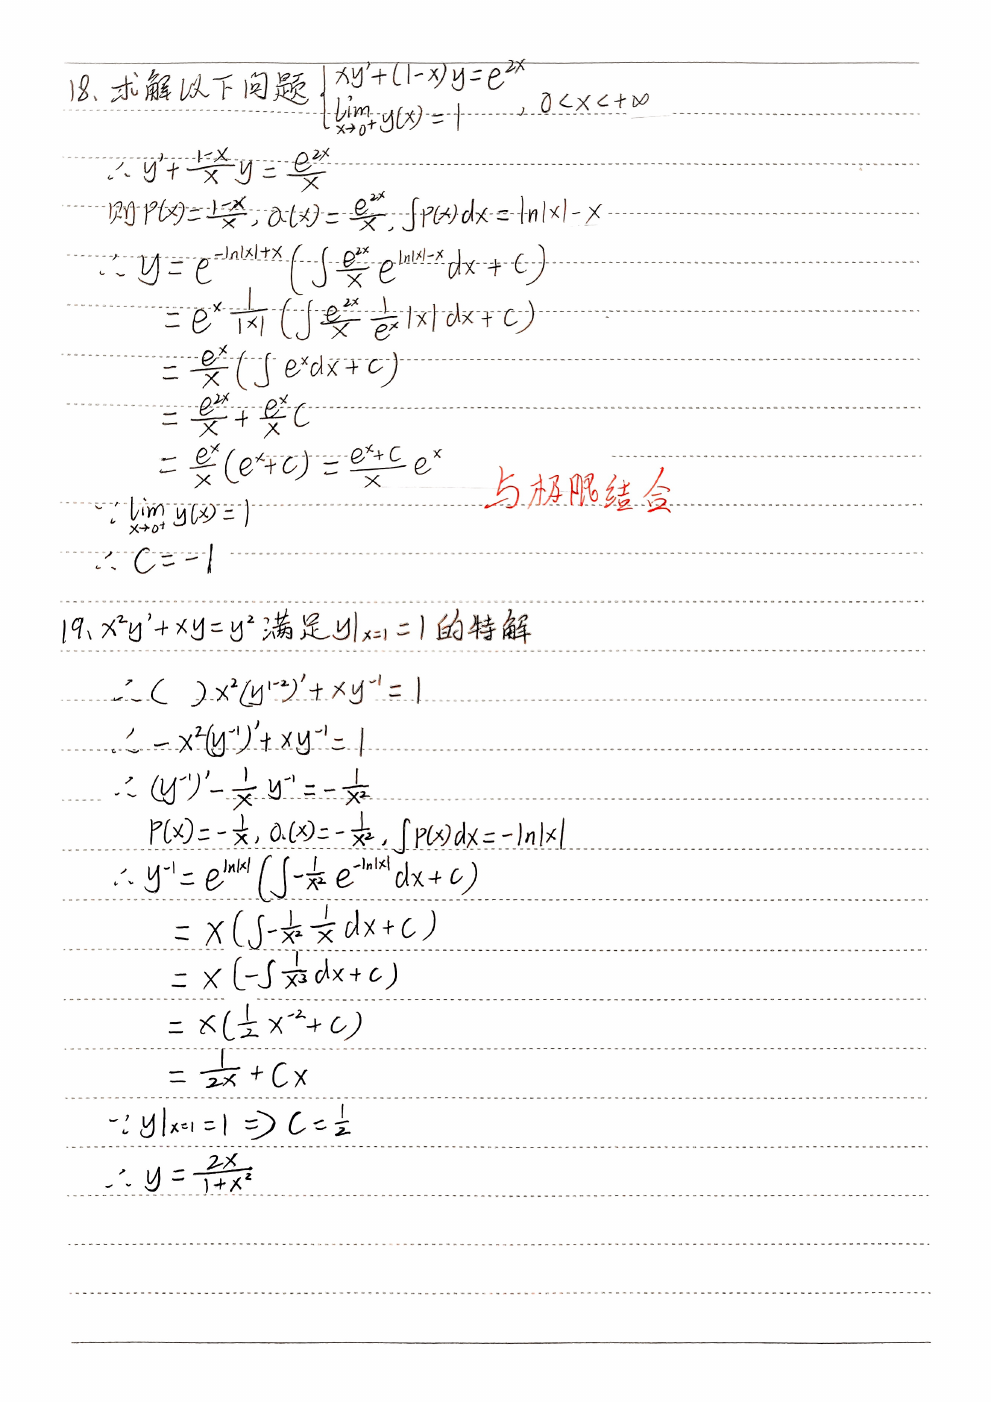 18、求解以下问题 { xy'+(1-x)y=e^{2x}
lim_{x→0⁺} y(x)=1 , 0<x<+∞
∴ y'+\frac{1-x}{x}y=\frac{e^{2x}}{x}
则P(x)=\frac{1-x}{x}, Q(x)=\frac{e^{2x}}{x}, ∫P(x)dx=ln|x|-x
∴ y=e^{-ln|x|+x}(∫\frac{e^{2x}}{x}e^{ln|x|-x}dx+C)
=e^x\frac{1}{|x|}(∫\frac{e^{2x}}{x}\frac{1}{e^x}|x|dx+C)
=\frac{e^x}{x}(∫e^xdx+C)
=\frac{e^{2x}}{x}+\frac{e^x}{x}C
=\frac{e^x}{x}(e^x+C)=\frac{e^x+C}{x}e^x
与极限结合
∵ lim_{x→0⁺} y(x)=1
∴ C=-1
19、x²y'+xy=y²满足y|_{x=1}=1的特解
∴ ( )x²(y^{1-2})'+xy^{-1}=1
∴ -x²(y^{-1})'+xy^{-1}=1
∴ (y^{-1})'-\frac{1}{x}y^{-1}=-\frac{1}{x²}
P(x)=-\frac{1}{x}, Q(x)=-\frac{1}{x²}, ∫P(x)dx=-ln|x|
∴ y^{-1}=e^{ln|x|}(∫-\frac{1}{x²}e^{-ln|x|}dx+C)
=x(∫-\frac{1}{x²}\frac{1}{x}dx+C)
=x(-∫\frac{1}{x³}dx+C)
=x(\frac{1}{2}x^{-2}+C)
=\frac{1}{2x}+Cx
∵ y|_{x=1}=1 ⇒ C=\frac{1}{2}
∴ y=\frac{2x}{1+x²}